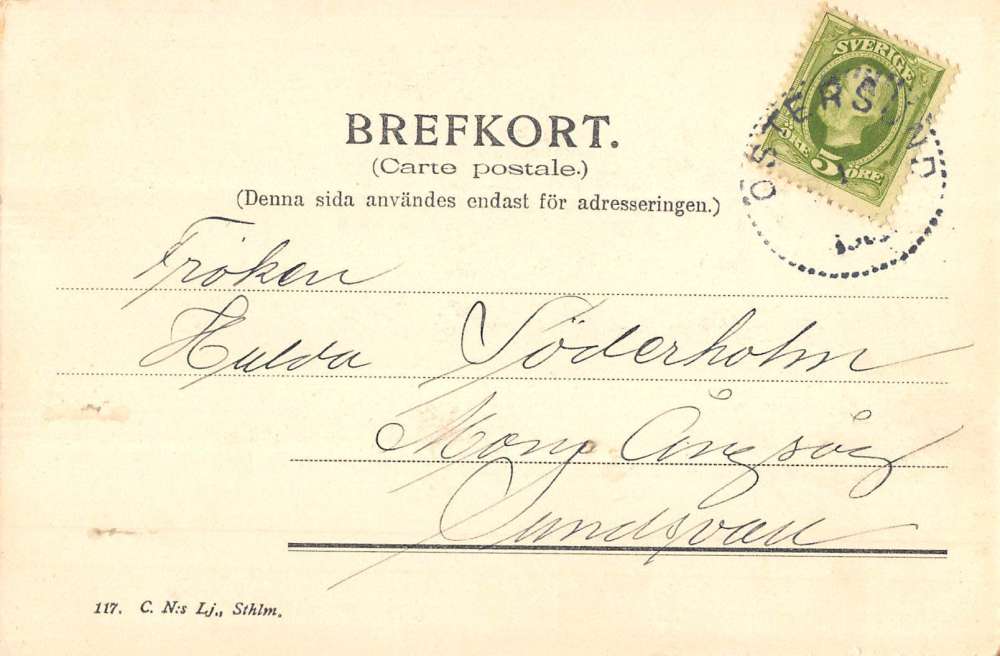 BREFKORT.
(Carte postale.)
(Denna sida användes endast för adresseringen.)
SVERIGE
ÖRE 5 ÖRE
ÖSTERSUND
Fröken
Hulda Söderholm
Mons Ångsåg
Sundsvall
117. C. N:s Lj., Sthlm.